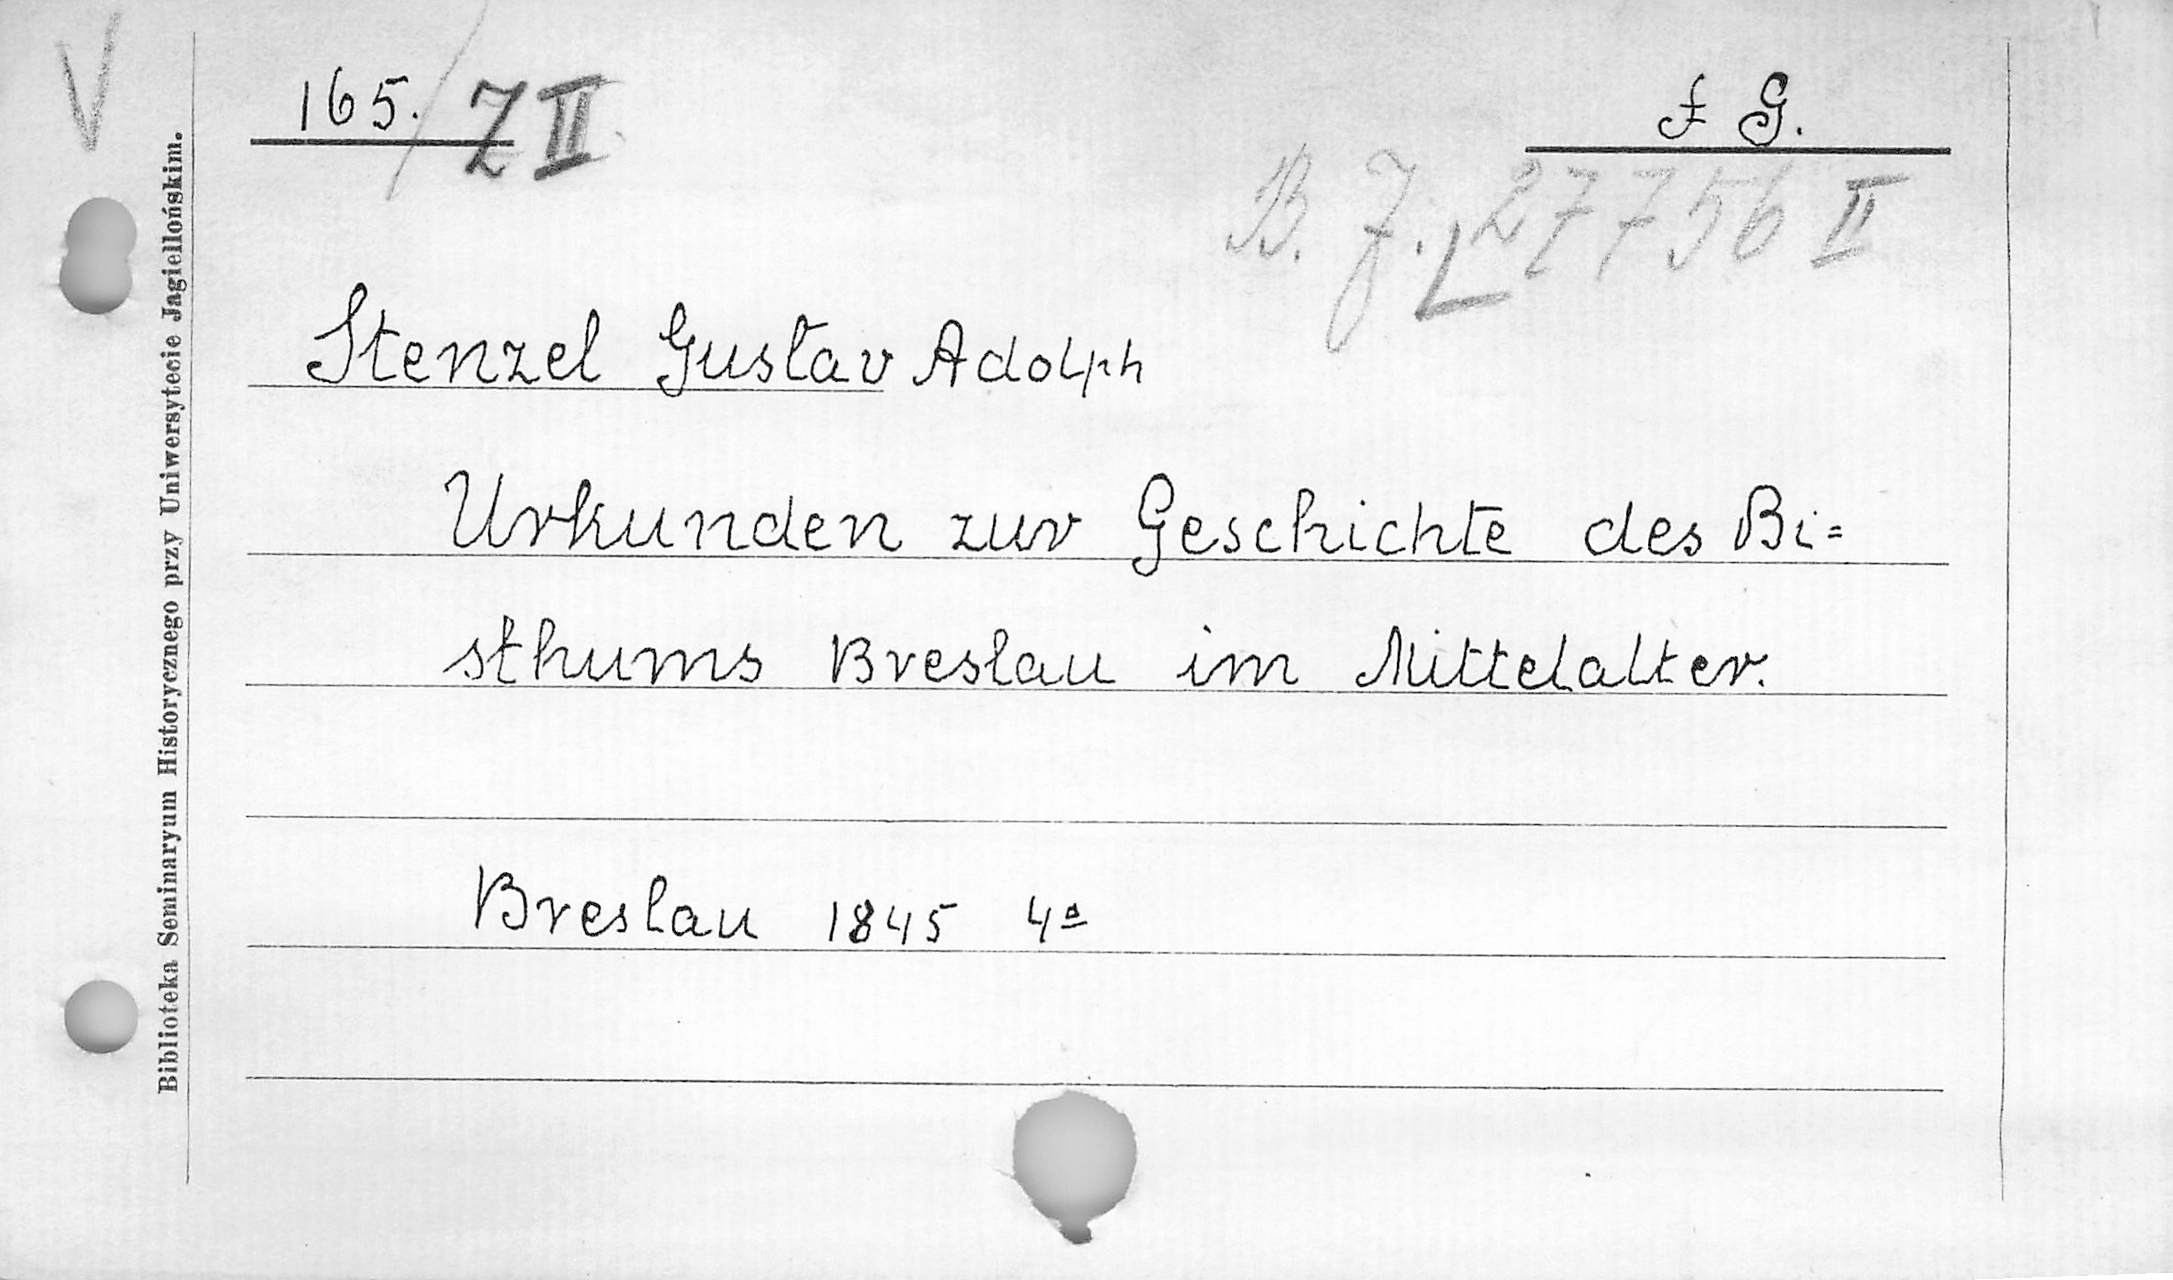 V
165. / Z II
f G.
B. J. L 27756 II
Stenzel Gustav Adolph
Urkunden zur Geschichte des Bi=
sthums Breslau im Mittelalter.
Breslau 1845 4º
Biblioteka Seminaryum Historycznego przy Uniwersytecie Jagiellońskim.